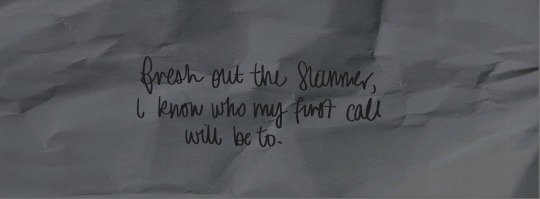 fresh out the slammer,
i know who my first call
will be to.